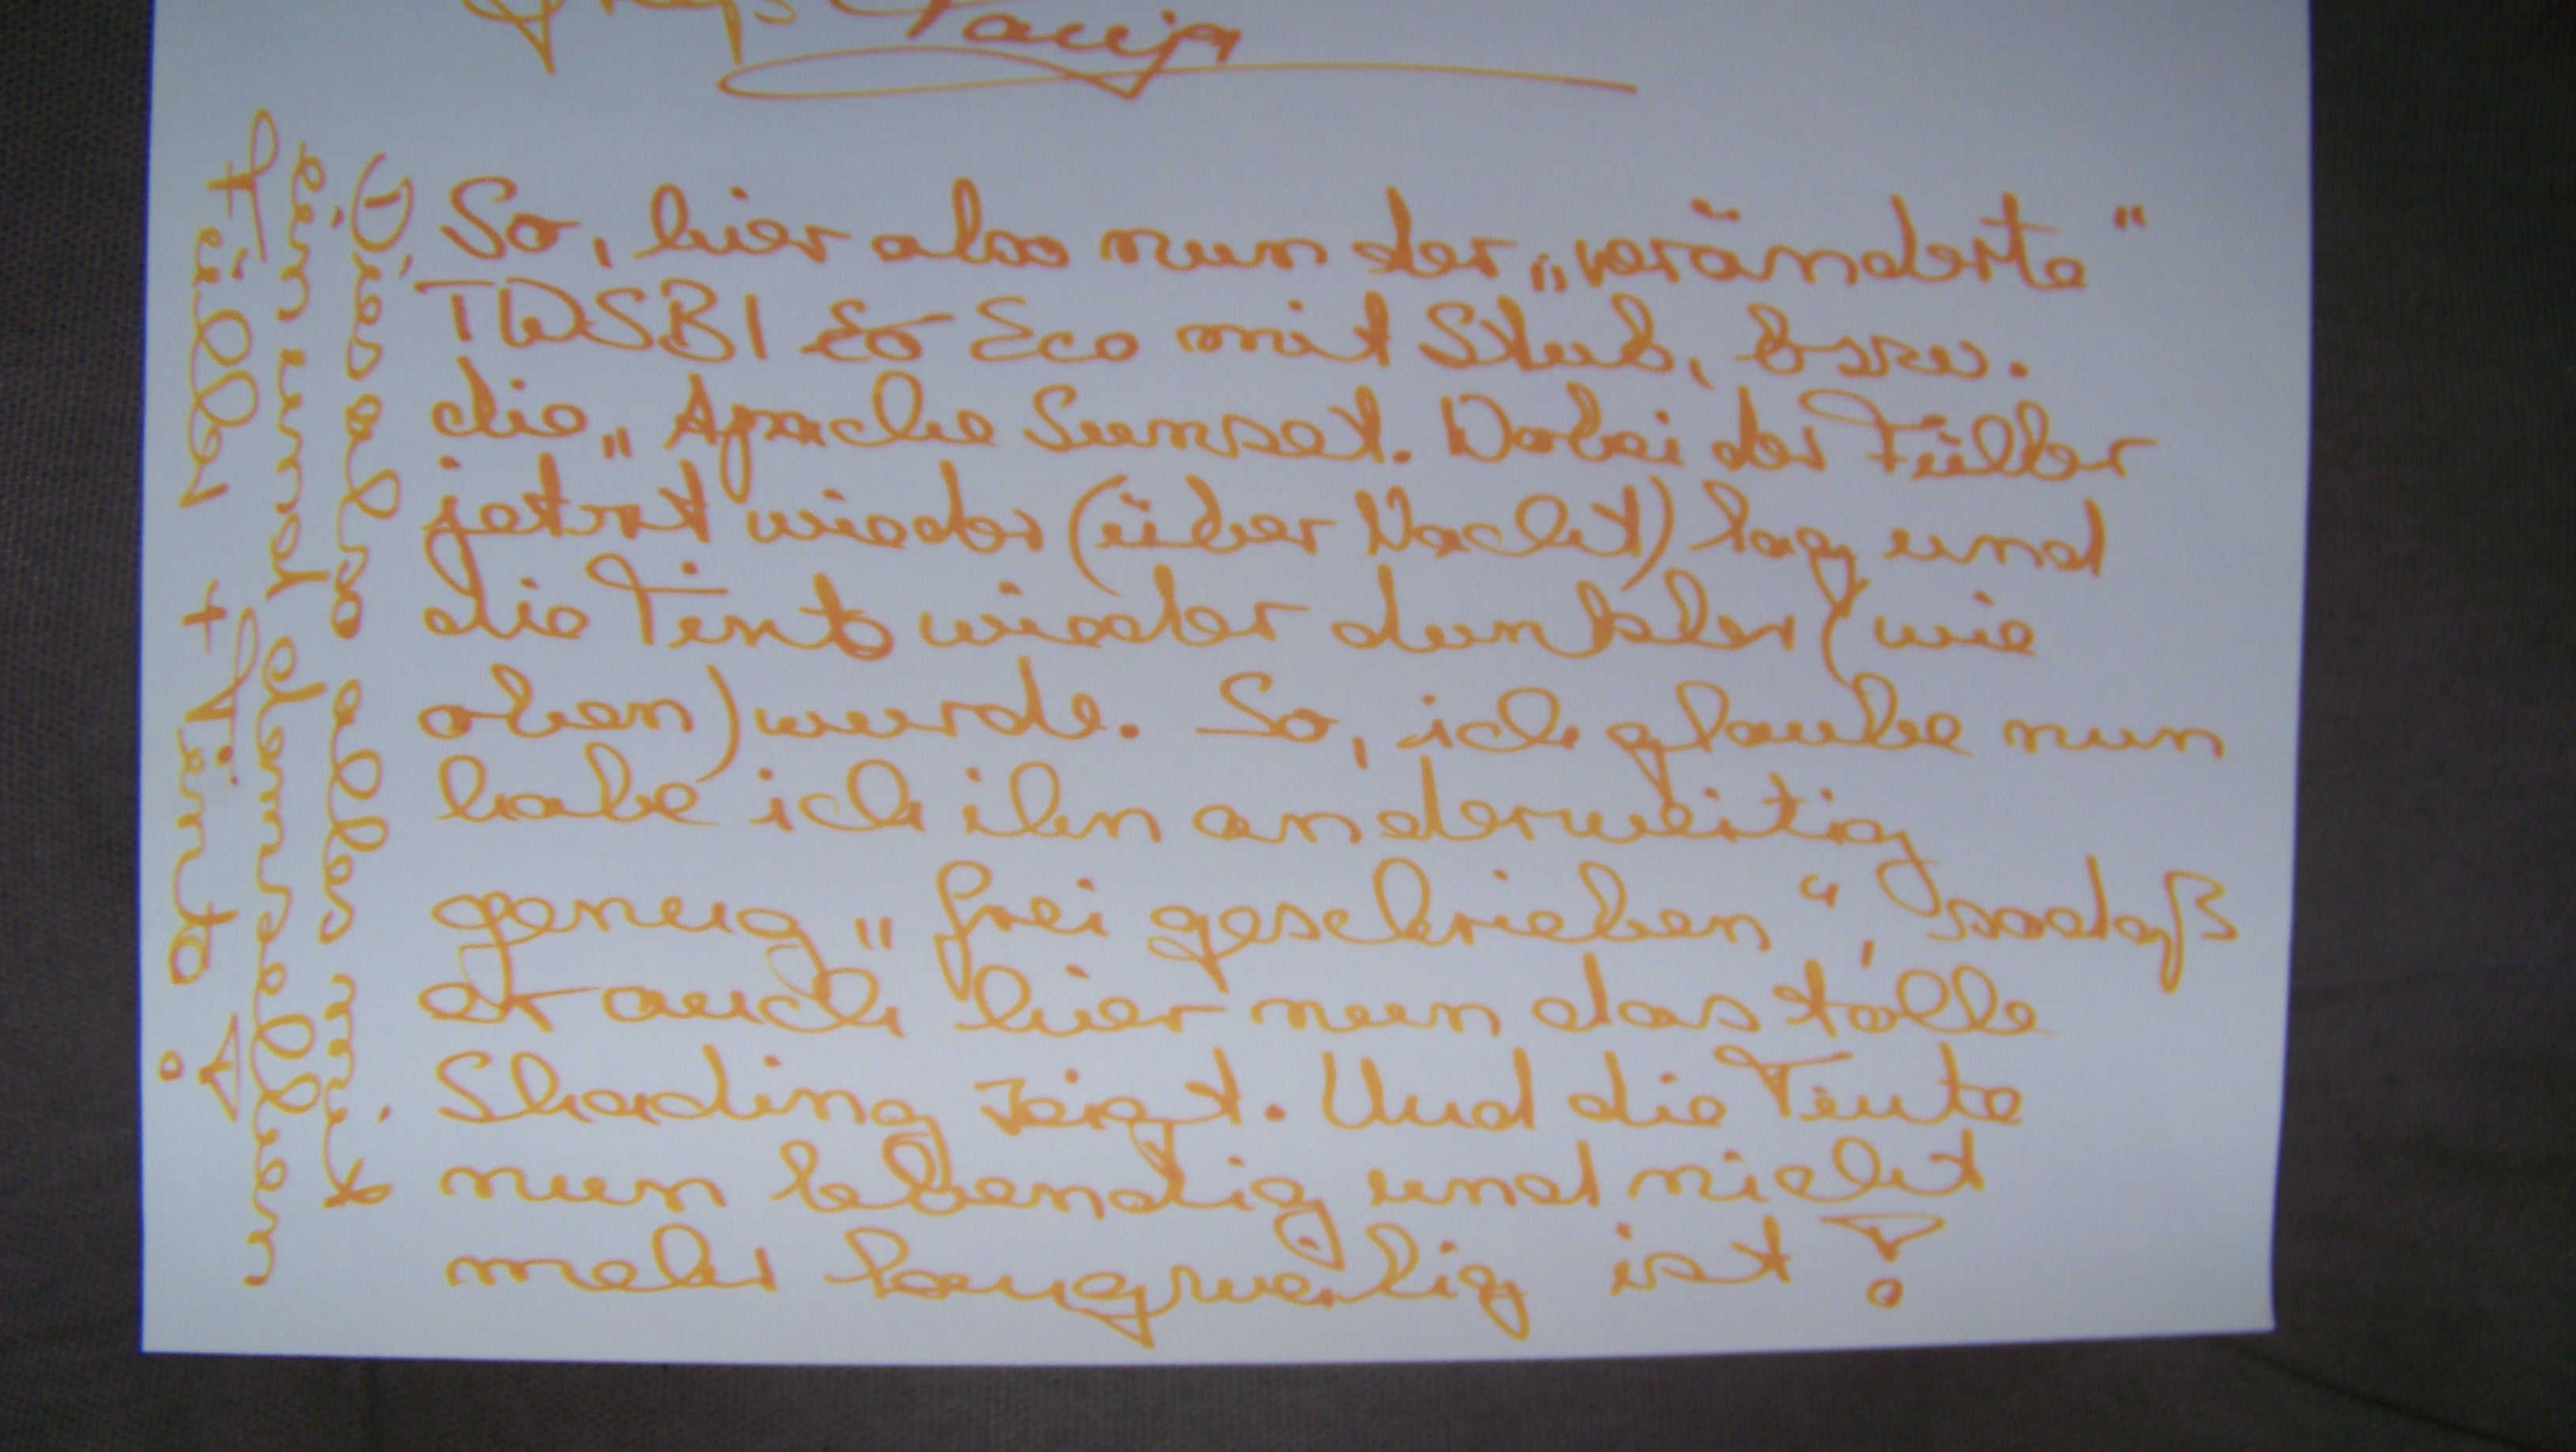 So, hier also nun der „veränderte“
TWSBI Eo Eco mit Stub, bszw.
die „Apache Sunset. Wobei der Füller
jetzt wieder (über Nacht) lag und
die Tinte wieder dunkler (wie
oben) wurde. So, ich glaube nun
habe ich ihn anderweitig
genug „frei geschrieben“, sodaß
er auch hier nun das tolle
Shading zeigt. Und die Tinte
nun lebendig und nicht
mehr langweilig ist!
Dies also alles mit
ein und demselben
Füller + Tinte!